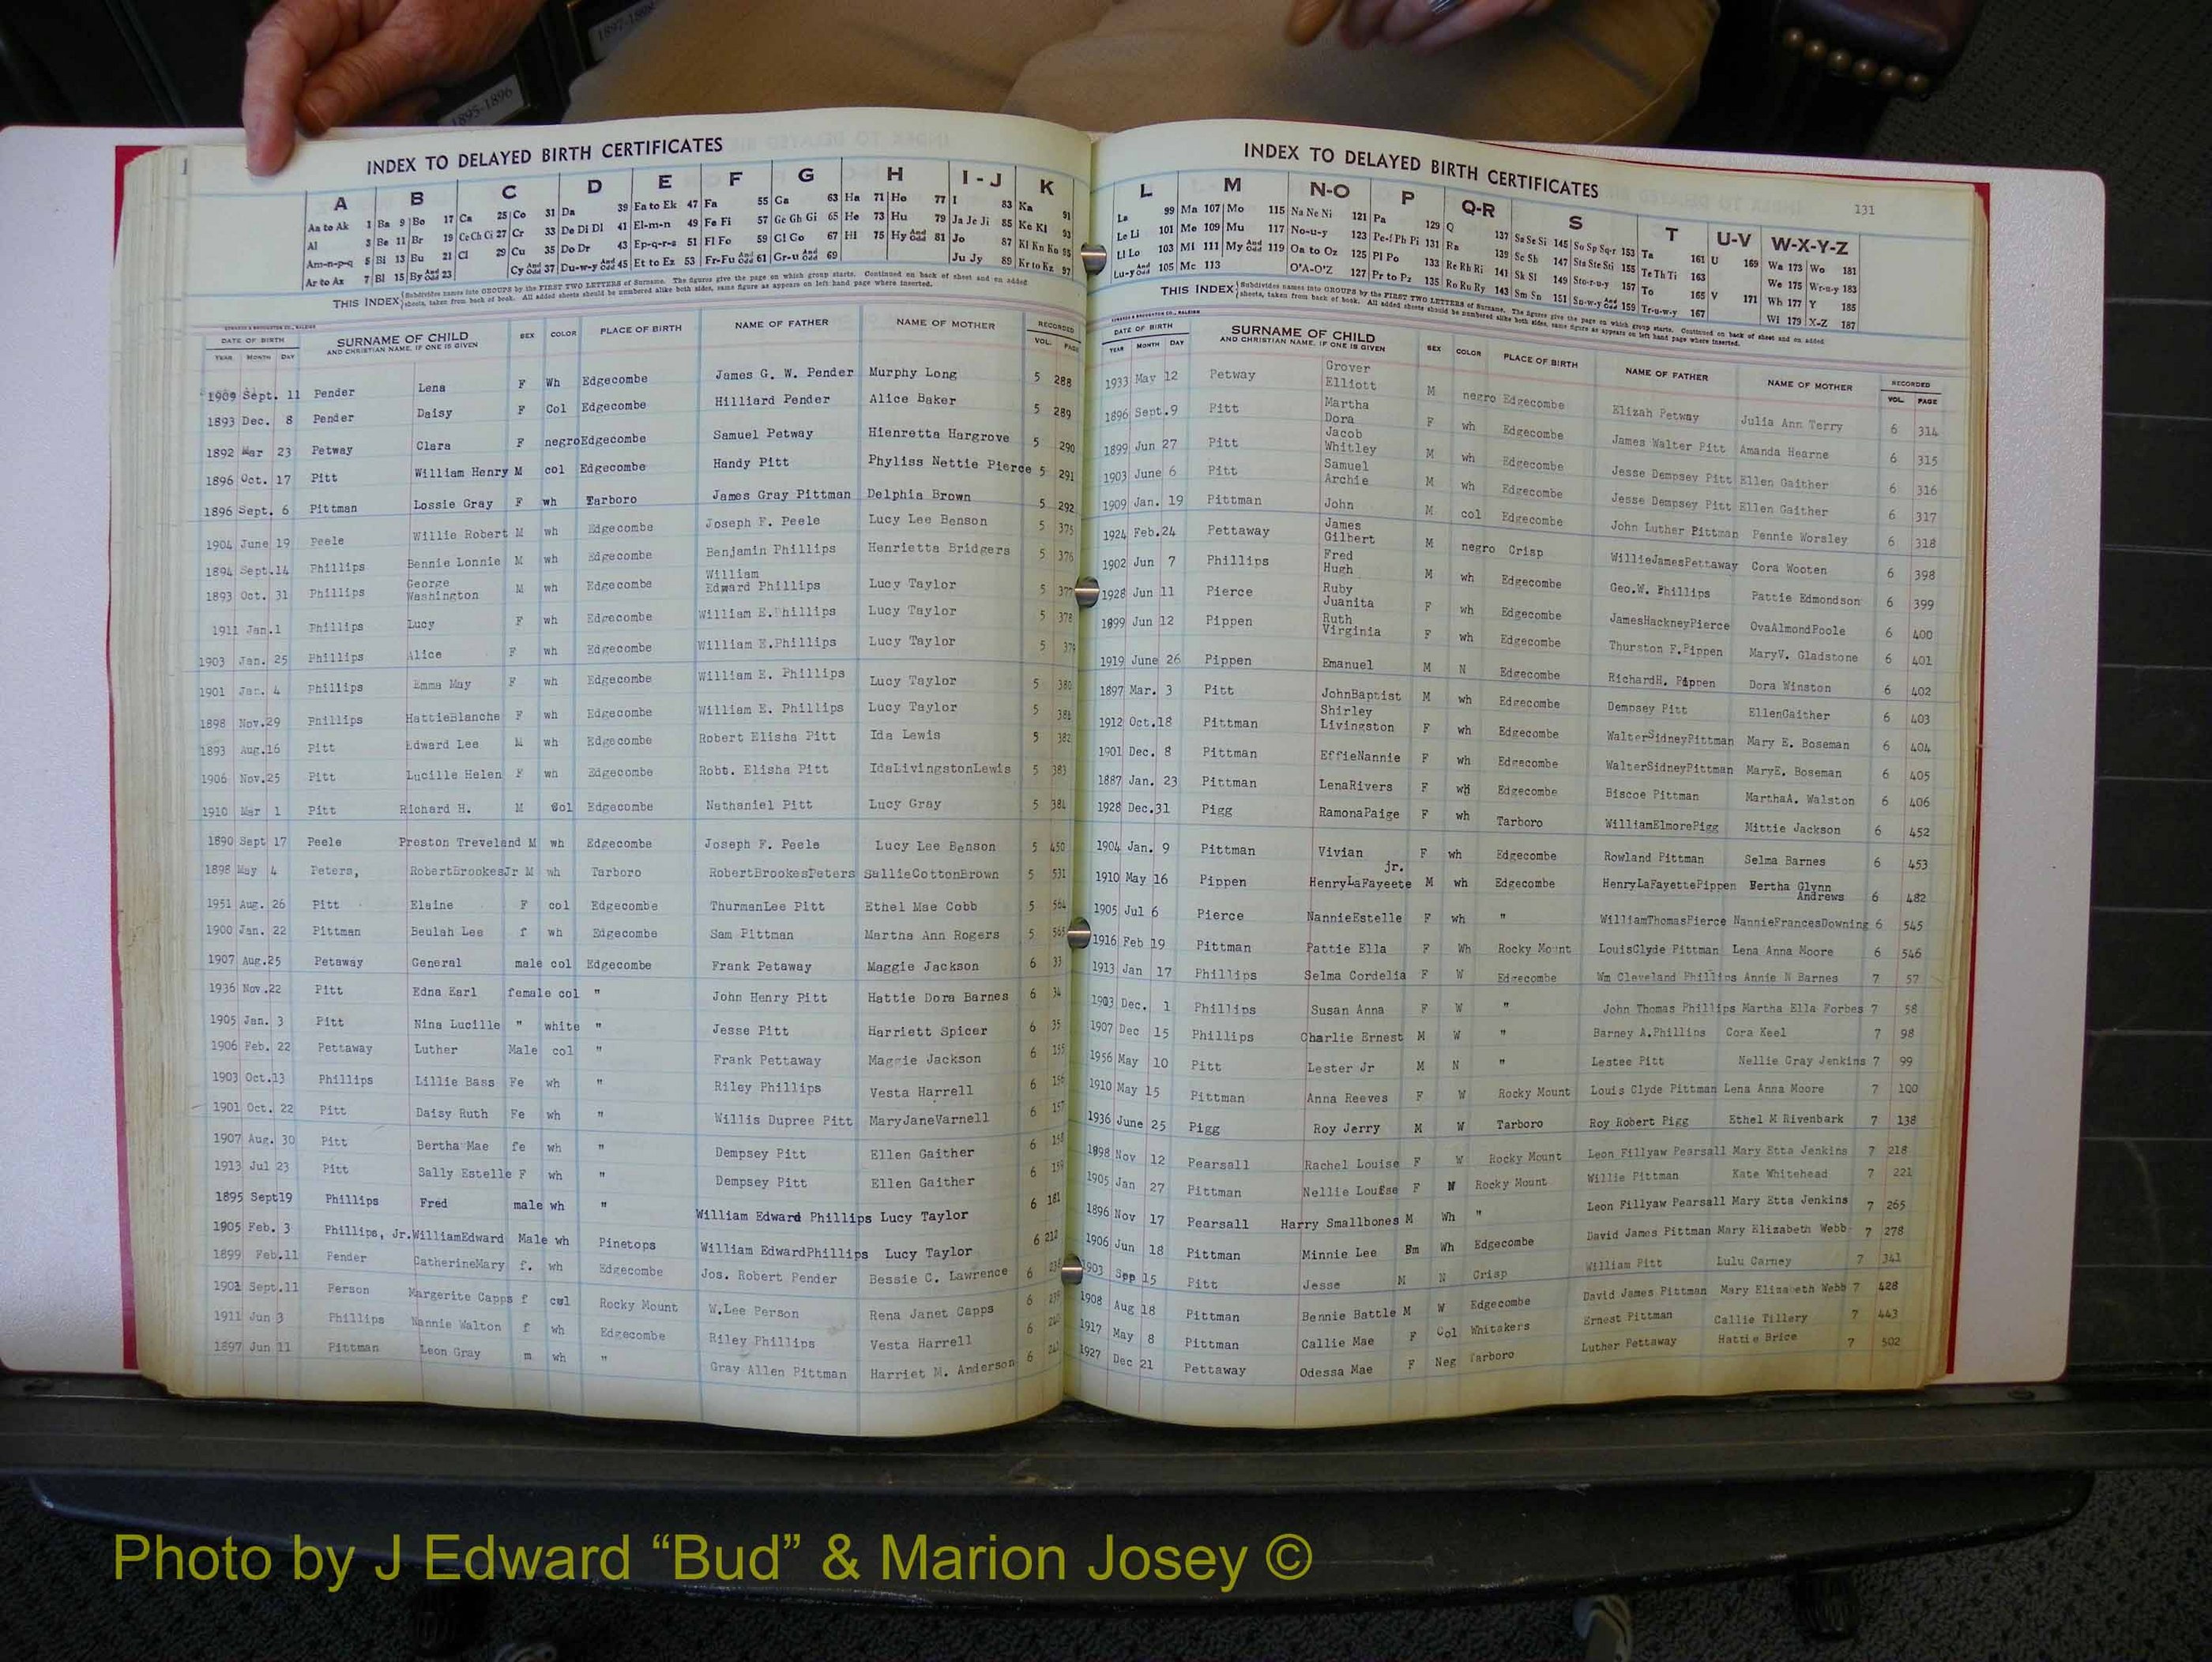 1897-1898
1895-1896
INDEX TO DELAYED BIRTH CERTIFICATES
A B C D E F G H I - J K
Aa to Ak 1 Ba 9 Bo 17 Ca 25 Co 31 Da 39 Ea to Ek 47 Fa 55 Ga 63 Ha 71 Ho 77 I 83 Ka 91
Al 3 Be 11 Br 19 Ce Ch Ci 27 Cr 33 De Di Dl 41 El-m-n 49 Fe Fi 57 Ge Gh Gi 65 He 73 Hu 79 Ja Je Ji 85 Ke Kl 93
Am-n-p-q 5 Bi 13 Bu 21 Cl 29 Cu 35 Do Dr 43 Ep-q-r-s 51 Fl Fo 59 Gl Go 67 Hi 75 Hy And Odd 81 Jo 87 Kl Kn Ko 95
Ar to Az 7 Bl 15 By And Odd 23 Cy And Odd 37 Du-w-y And Odd 45 Et to Ez 53 Fr-Fu And Odd 61 Gr-u And Odd 69 Ju Jy 89 Kr to Kz 97
THIS INDEX Subdivides names into GROUPS by the FIRST TWO LETTERS of Surname. The figures give the page on which group starts. Continued on back of sheet and on added
sheets, taken from back of book. All added sheets should be numbered alike both sides, same figure as appears on left hand page where inserted.
EDWARDS & BROUGHTON CO., RALEIGH
DATE OF BIRTH SURNAME OF CHILD SEX COLOR PLACE OF BIRTH NAME OF FATHER NAME OF MOTHER RECORDED
YEAR MONTH DAY AND CHRISTIAN NAME, IF ONE IS GIVEN VOL. PAGE
1909 Sept. 11 Pender Lena F Wh Edgecombe James G. W. Pender Murphy Long 5 288
1893 Dec. 8 Pender Daisy F Col Edgecombe Hilliard Pender Alice Baker 5 289
1892 Mar 23 Petway Clara F negro Edgecombe Samuel Petway Hienretta Hargrove 5 290
1896 Oct. 17 Pitt William Henry M col Edgecombe Handy Pitt Phyliss Nettie Pierce 5 291
1896 Sept. 6 Pittman Lossie Gray F wh Tarboro James Gray Pittman Delphia Brown 5 292
1904 June 19 Peele Willie Robert M wh Edgecombe Joseph F. Peele Lucy Lee Benson 5 375
1894 Sept.14 Phillips Bennie Lonnie M wh Edgecombe Benjamin Phillips Henrietta Bridgers 5 376
1893 Oct. 31 Phillips George Washington M wh Edgecombe William Edward Phillips Lucy Taylor 5 377
1911 Jan.1 Phillips Lucy F wh Edgecombe William E.Phillips Lucy Taylor 5 378
1903 Jan. 25 Phillips Alice F wh Edgecombe William E.Phillips Lucy Taylor 5 379
1901 Jan. 4 Phillips Emma May F wh Edgecombe William E. Phillips Lucy Taylor 5 380
1898 Nov.29 Phillips HattieBlanche F wh Edgecombe William E. Phillips Lucy Taylor 5 381
1893 Aug.16 Pitt Edward Lee M wh Edgecombe Robert Elisha Pitt Ida Lewis 5 382
1906 Nov.25 Pitt Lucille Helen F wh Edgecombe Robt. Elisha Pitt IdaLivingstonLewis 5 383
1910 Mar 1 Pitt Richard H. M Col Edgecombe Nathaniel Pitt Lucy Gray 5 384
1890 Sept 17 Peele Preston Treveland M wh Edgecombe Joseph F. Peele Lucy Lee Benson 5 450
1898 May 4 Peters, RobertBrookesJr M wh Tarboro RobertBrookesPeters SallieCottonBrown 5 531
1951 Aug. 26 Pitt Elaine F col Edgecombe ThurmanLee Pitt Ethel Mae Cobb 5 564
1900 Jan. 22 Pittman Beulah Lee f wh Edgecombe Sam Pittman Martha Ann Rogers 5 565
1907 Aug.25 Petaway General male col Edgecombe Frank Petaway Maggie Jackson 6 33
1936 Nov.22 Pitt Edna Earl female col " John Henry Pitt Hattie Dora Barnes 6 34
1905 Jan. 3 Pitt Nina Lucille " white " Jesse Pitt Harriett Spicer 6 35
1906 Feb. 22 Pettaway Luther Male col " Frank Pettaway Maggie Jackson 6 155
1903 Oct.13 Phillips Lillie Bass Fe wh " Riley Phillips Vesta Harrell 6 156
1901 Oct. 22 Pitt Daisy Ruth Fe wh " Willis Dupree Pitt MaryJaneVarnell 6 157
1907 Aug. 30 Pitt Bertha Mae fe wh " Dempsey Pitt Ellen Gaither 6 158
1913 Jul 23 Pitt Sally Estelle F wh " Dempsey Pitt Ellen Gaither 6 159
1895 Sept19 Phillips Fred male wh " William Edward Phillips Lucy Taylor 6 181
1905 Feb. 3 Phillips, Jr.WilliamEdward Male wh Pinetops William EdwardPhillips Lucy Taylor 6 212
1899 Feb.11 Pender CatherineMary f. wh Edgecombe Jos. Robert Pender Bessie C. Lawrence 6
1902 Sept.11 Person Margerite Capps f col Rocky Mount W.Lee Person Rena Janet Capps 6 239
1911 Jun 3 Phillips Nannie Walton f wh Edgecombe Riley Phillips Vesta Harrell 6 240
1897 Jun 11 Pittman Leon Gray m wh " Gray Allen Pittman Harriet M. Anderson 6 241
INDEX TO DELAYED BIRTH CERTIFICATES
131
L M N-O P Q-R S T U-V W-X-Y-Z
La 99 Ma 107 Mo 115 Na Ne Ni 121 Pa 129 Q 137 Sa Se Si 145 So Sp Sq-r 153 Ta 161 U 169 Wa 173 Wo 181
Le Li 101 Me 109 Mu 117 No-u-y 123 Pe-f Ph Pi 131 Ra 139 Sc Sh 147 Sta Ste Sti 155 Te Th Ti 163 We 175 Wr-u-y 183
Ll Lo 103 Mi 111 My And Odd 119 Oa to Oz 125 Pl Po 133 Re Rh Ri 141 Sk Sl 149 Sto-r-u-y 157 To 165 V 171 Wh 177 Y 185
Lu-y And Odd 105 Mc 113 O'A-O'Z 127 Pr to Pz 135 Ro Ru Ry 143 Sm Sn 151 Su-w-y And Odd 159 Tr-u-w-y 167 Wi 179 X-Z 187
THIS INDEX Subdivides names into GROUPS by the FIRST TWO LETTERS of Surname. The figures give the page on which group starts. Continued on back of sheet and on added
sheets, taken from back of book. All added sheets should be numbered alike both sides, same figure as appears on left hand page where inserted.
EDWARDS & BROUGHTON CO., RALEIGH
DATE OF BIRTH SURNAME OF CHILD SEX COLOR PLACE OF BIRTH NAME OF FATHER NAME OF MOTHER RECORDED
YEAR MONTH DAY AND CHRISTIAN NAME, IF ONE IS GIVEN VOL. PAGE
1933 May 12 Petway Grover Elliott M negro Edgecombe Elizah Petway Julia Ann Terry 6 314
1896 Sept.9 Pitt Martha Dora F wh Edgecombe James Walter Pitt Amanda Hearne 6 315
1899 Jun 27 Pitt Jacob Whitley M wh Edgecombe Jesse Dempsey Pitt Ellen Gaither 6 316
1903 June 6 Pitt Samuel Archie M wh Edgecombe Jesse Dempsey Pitt Ellen Gaither 6 317
1909 Jan. 19 Pittman John M col Edgecombe John Luther Pittman Pennie Worsley 6 318
1924 Feb.24 Pettaway James Gilbert M negro Crisp WillieJamesPettaway Cora Wooten 6 398
1902 Jun 7 Phillips Fred Hugh M wh Edgecombe Geo.W. Phillips Pattie Edmondson 6 399
1928 Jun 11 Pierce Ruby Juanita F wh Edgecombe JamesHackneyPierce OvaAlmondPoole 6 400
1899 Jun 12 Pippen Ruth Virginia F wh Edgecombe Thurston F.Pippen MaryV. Gladstone 6 401
1919 June 26 Pippen Emanuel M N Edgecombe RichardH. Pippen Dora Winston 6 402
1897 Mar. 3 Pitt JohnBaptist M wh Edgecombe Dempsey Pitt EllenGaither 6 403
1912 Oct.18 Pittman Shirley Livingston F wh Edgecombe WalterSidneyPittman Mary E. Boseman 6 404
1901 Dec. 8 Pittman EffieNannie F wh Edgecombe WalterSidneyPittman MaryE. Boseman 6 405
1887 Jan. 23 Pittman LenaRivers F wh Edgecombe Biscoe Pittman MarthaA. Walston 6 406
1928 Dec.31 Pigg RamonaPaige F wh Tarboro WilliamElmorePigg Mittie Jackson 6 452
1904 Jan. 9 Pittman Vivian F wh Edgecombe Rowland Pittman Selma Barnes 6 453
1910 May 16 Pippen HenryLaFayeete jr. M wh Edgecombe HenryLaFayettePippen Bertha Glynn Andrews 6 482
1905 Jul 6 Pierce NannieEstelle F wh " WilliamThomasPierce NannieFrancesDowning 6 545
1916 Feb 19 Pittman Pattie Ella F Wh Rocky Mount LouisClyde Pittman Lena Anna Moore 6 546
1913 Jan 17 Phillips Selma Cordelia F W Edgecombe Wm Cleveland Phillips Annie N Barnes 7 57
1903 Dec. 1 Phillips Susan Anna F W " John Thomas Phillips Martha Ella Forbes 7 58
1907 Dec 15 Phillips Charlie Ernest M W " Barney A.Phillips Cora Keel 7 98
1956 May 10 Pitt Lester Jr M N " Lestee Pitt Nellie Gray Jenkins 7 99
1910 May 15 Pittman Anna Reeves F W Rocky Mount Louis Clyde Pittman Lena Anna Moore 7 100
1936 June 25 Pigg Roy Jerry M W Tarboro Roy Robert Pigg Ethel M Rivenbark 7 138
1898 Nov 12 Pearsall Rachel Louise F W Rocky Mount Leon Fillyaw Pearsall Mary Etta Jenkins 7 218
1905 Jan 27 Pittman Nellie Louise F W Rocky Mount Willie Pittman Kate Whitehead 7 221
1896 Nov 17 Pearsall Harry Smallbones M Wh " Leon Fillyaw Pearsall Mary Etta Jenkins 7 265
1906 Jun 18 Pittman Minnie Lee Fm Wh Edgecombe David James Pittman Mary Elizabeth Webb 7 278
1903 Spp 15 Pitt Jesse M N Crisp William Pitt Lulu Carney 7 341
1908 Aug 18 Pittman Bennie Battle M W Edgecombe David James Pittman Mary Elizabeth Webb 7 428
1917 May 8 Pittman Callie Mae F Col Whitakers Ernest Pittman Callie Tillery 7 443
1927 Dec 21 Pettaway Odessa Mae F Neg Tarboro Luther Pettaway Hattie Brice 7 502
Photo by J Edward “Bud” & Marion Josey ©